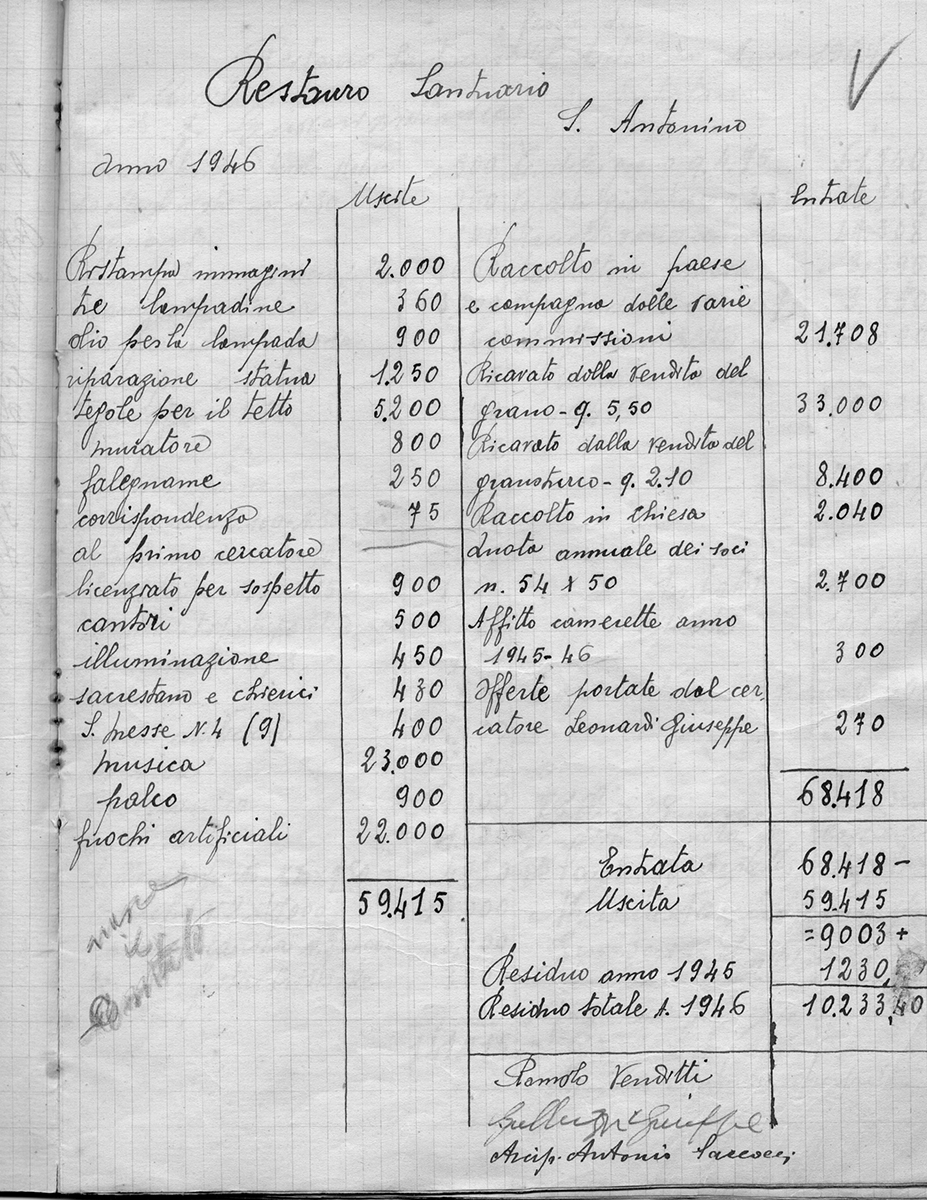 Restauro Santuario
S. Antonino
anno 1946
Uscite
Ristampa immagini 2.000
tre lampadine 360
olio per la lampada 900
riparazione statua 1.250
tegole per il tetto 5.200
muratore 800
falegname 250
corrispondenza 75
al primo cercatore
licenziato per sospetto 900
cantori 500
illuminazione 450
sacrestano e chierici 430
S. Messe N. 4 (9) 400
musica 23.000
palco 900
fuochi artificiali 22.000
59.415
manca
il
Entrate
Raccolto in paese
e campagna dalle varie
commissioni 21.708
Ricavato dalla vendita del
grano - q. 5,50 33.000
Ricavato dalla vendita del
granoturco - q. 2.10 8.400
Raccolto in Chiesa 2.040
Quota annuale dei soci
n. 54 x 50 2.700
Affitto camerette anno
1945-46 300
Offerte portate dal cer
catore Leonardi Giuseppe 270
68.418
Entrata 68.418 -
Uscita 59.415
= 9003 +
Residuo anno 1945 1230,
Residuo totale A. 1946 10.233,40
Romolo Venditti
Arcip. Antonio